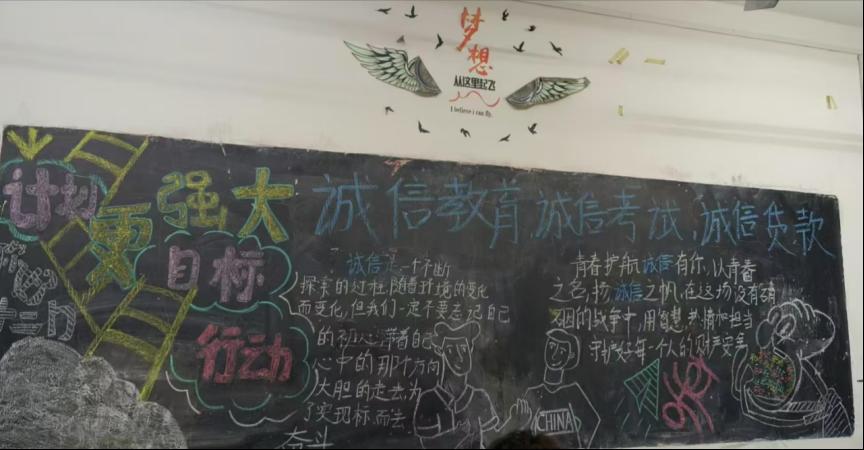 梦想
从这里起飞
I believe i can fly.
计划
更强大
目标
行动
诚信教育,诚信考试,诚信贷款
诚信是一个不断
探索的过程,随着环境的变化
而变化,但我们一定不要忘记自己
的初心,带着自己
心中的那个方向
大胆的走去,为
了实现标而去
奋斗
青春护航诚信有你,以青春
之名,扬诚信之帆,在这场没有硝
烟的战争中,用智慧,热情和担当
守护好每一个人的财产安全
CHINA